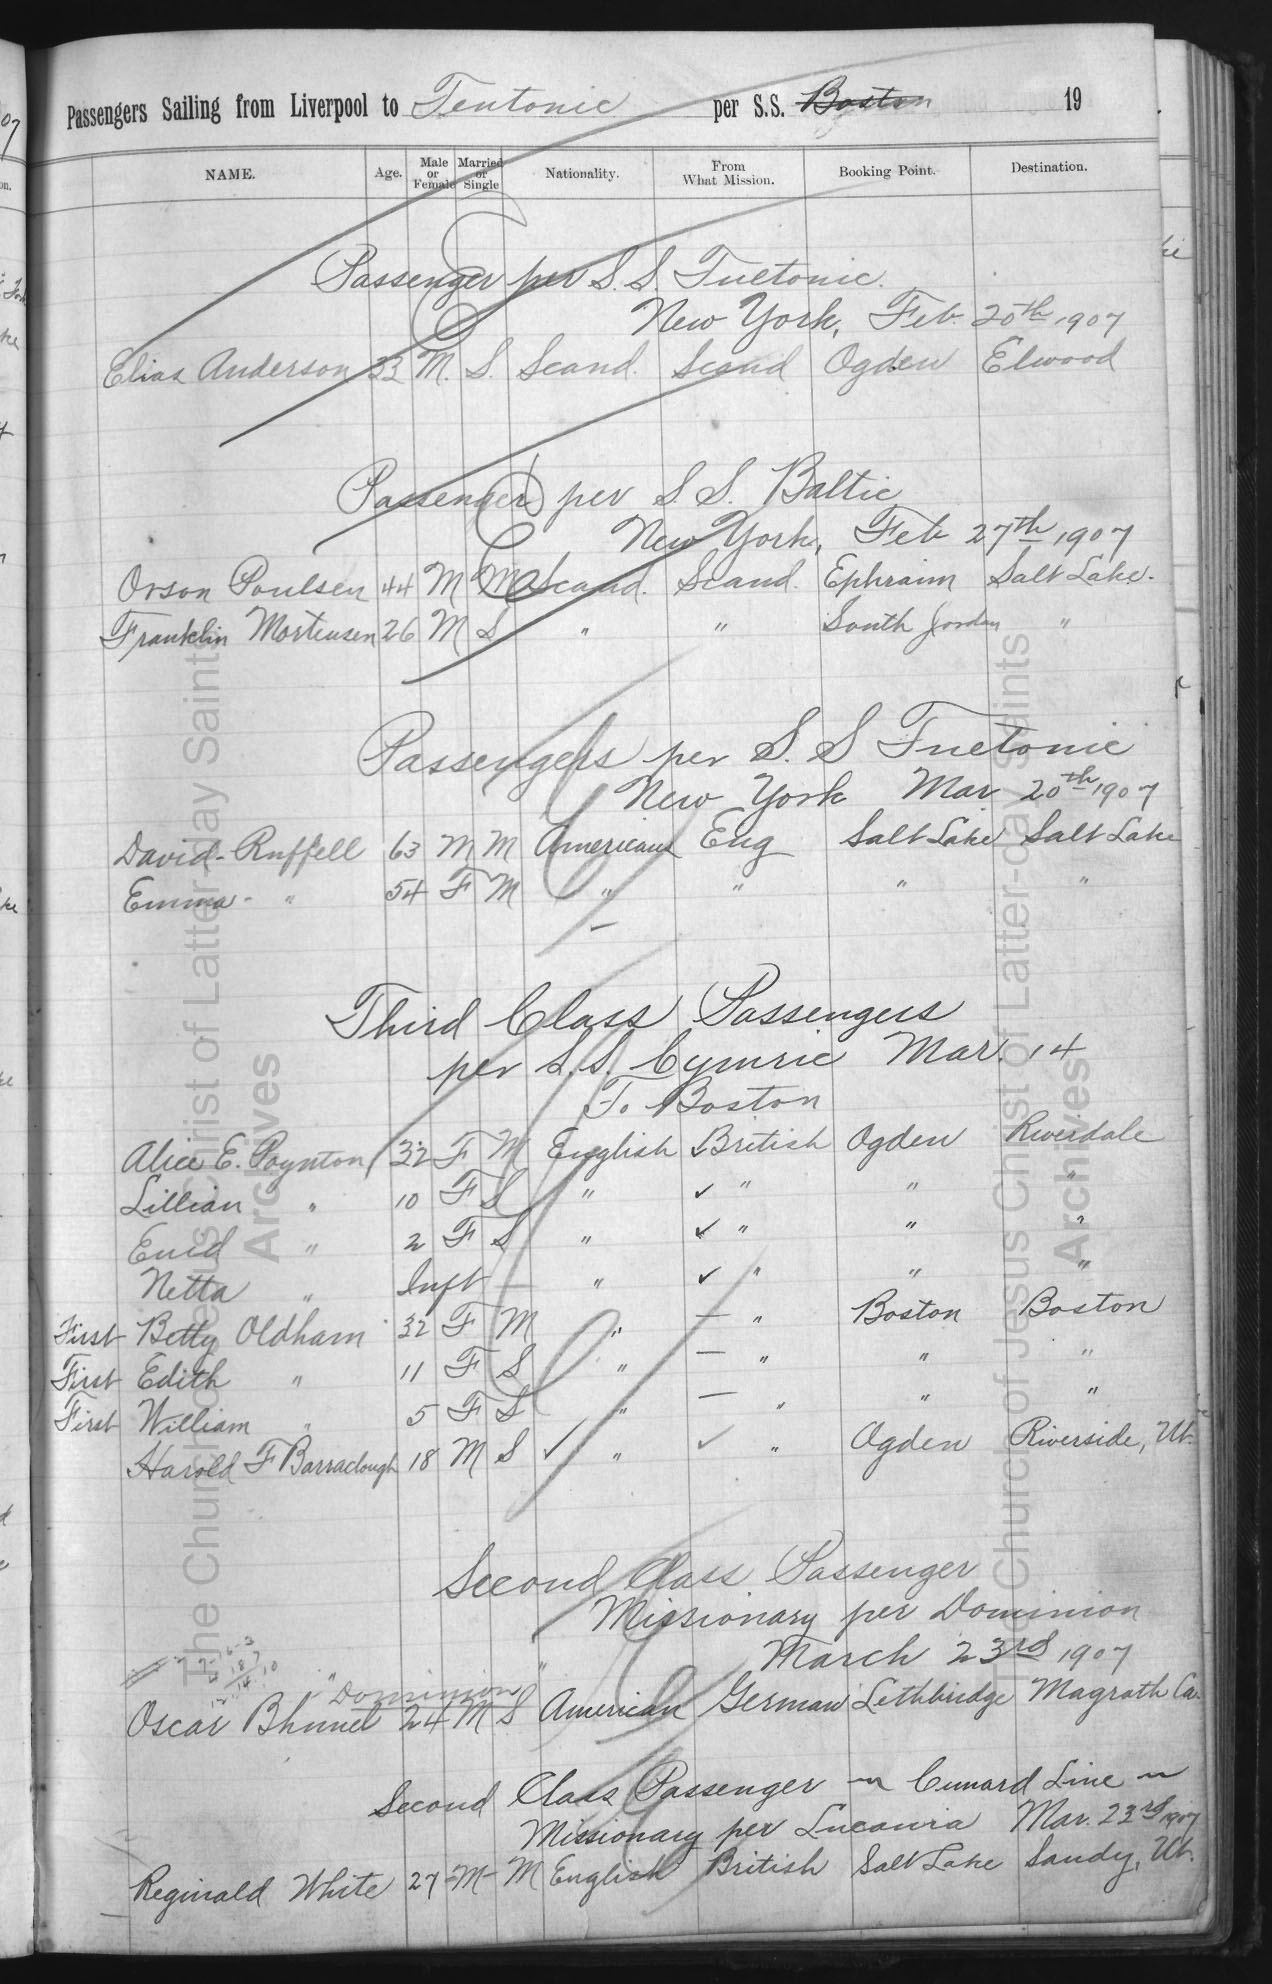 Passengers Sailing from Liverpool to Teutonic per S.S. Boston 19
NAME. Age. Male or Female Married or Single Nationality. From What Mission. Booking Point. Destination.
Passenger per S.S. Tuetonic.
New York, Feb. 20th 1907
Elias Anderson 33 M. S. Scand. Scand Ogden Elwood
Passenger per S.S. Baltic
New York, Feb 27th 1907
Orson Poulsen 44 M M Scand. Scand. Ephraim Salt Lake.
Franklin Mortensen 26 M S " " South Jordan "
Passengers per S.S Tuetonic
New York Mar 20th 1907
David Ruffell 63 M M American Eng Salt Lake Salt Lake
Emma " 54 F M " " " "
Third Class Passengers
per S.S. Cymric Mar. 14
To Boston
Alice E. Poynton 32 F M English British Ogden Riverdale
Lillian " 10 F S " ✓ " " "
Enid " 2 F S " ✓ " " "
Netta " Inft — " ✓ " " "
First Betty Oldham 32 F M " — " Boston Boston
First Edith " 11 F S " — " " "
First William " 5 F S " — " " "
Harold F Barraclough 18 M S ✓ " ✓ " Ogden Riverside, Ut.
Second Class Passenger
Missionary per Dominion
March 23rd 1907
" Dominion "
Oscar 24 M S American German Lethbridge Magrath Ca.
Second Class Passenger ~ Cunard Line ~
Missionary per Lucania Mar. 23rd 1907
Reginald White 27 M M English British Salt Lake Sandy, Ut.
The Church of Jesus Christ of Latter-day Saints
Archives
The Church of Jesus Christ of Latter-day Saints
Archives